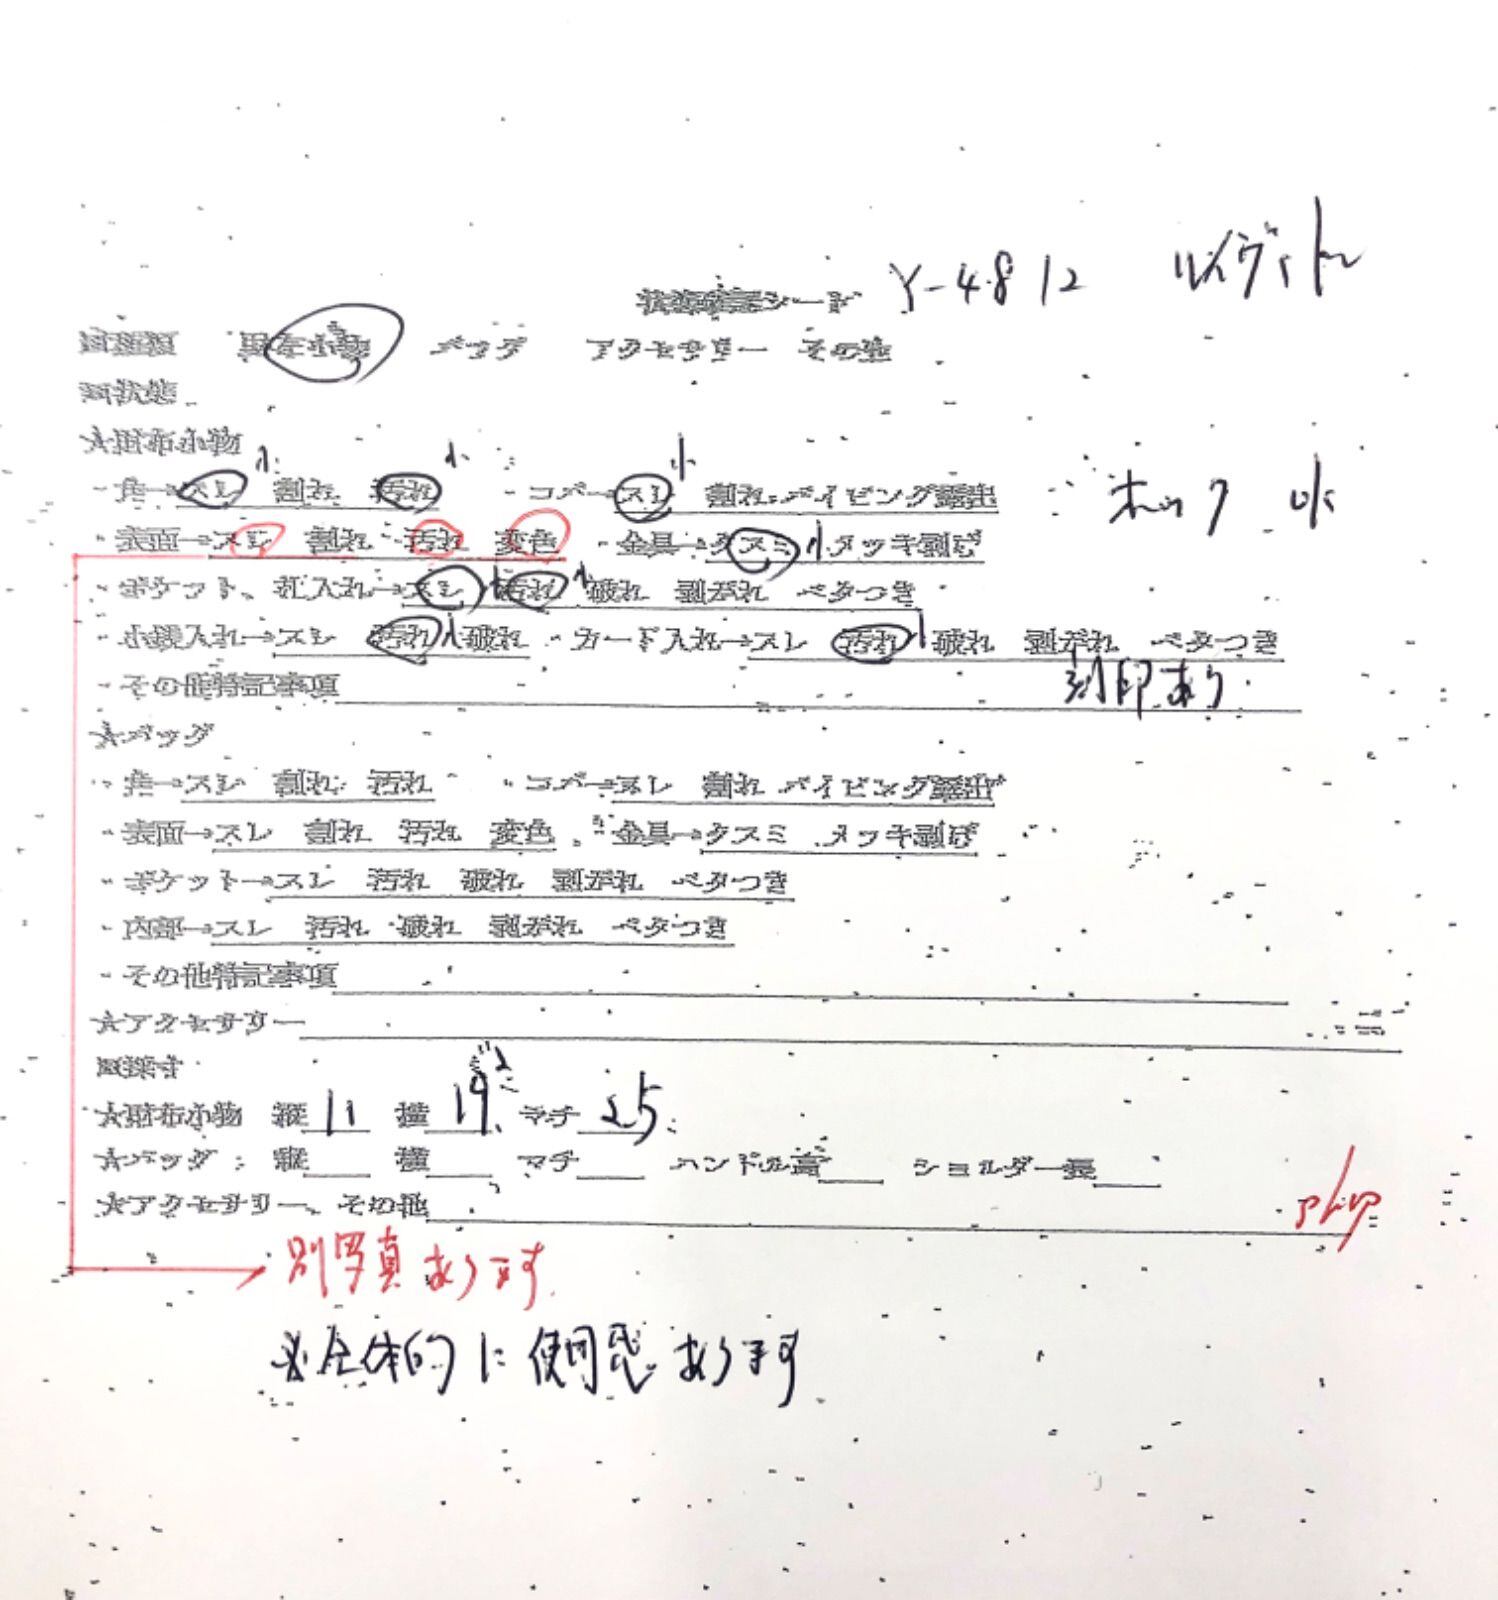 状態確認シート Y-4812 ルイヴィトン
財布小物 バッグ アクセサリー その他
状態
★財布小物
・角→スレ 小 割れ 汚れ 小 ・コバ→スレ 小 割れ パイピング露出 ホック 小
・表面→スレ 割れ 汚れ 変色 ・金具→クスミ 小 メッキ剥げ
・ポケット、札入れ→スレ 小 汚れ 小 破れ 剥がれ ベタつき
・小銭入れ→スレ 汚れ 小 破れ ・カード入れ→スレ 汚れ 小 破れ 剥がれ ベタつき
・その他特記事項 刻印あり
★バッグ
・角→スレ 割れ 汚れ ・コバ→スレ 割れ パイピング露出
・表面→スレ 割れ 汚れ 変色 ・金具→クスミ メッキ剥げ
・ポケット→スレ 汚れ 破れ 剥がれ ベタつき
・内部→スレ 汚れ 破れ 剥がれ ベタつき
・その他特記事項
★アクセサリー
採寸
★財布小物 縦 11 横 19 マチ 2.5
★バッグ 縦 横 マチ ハンドル高 ショルダー長
★アクセサリー、その他
別写真あります
※全体的に使用感あります